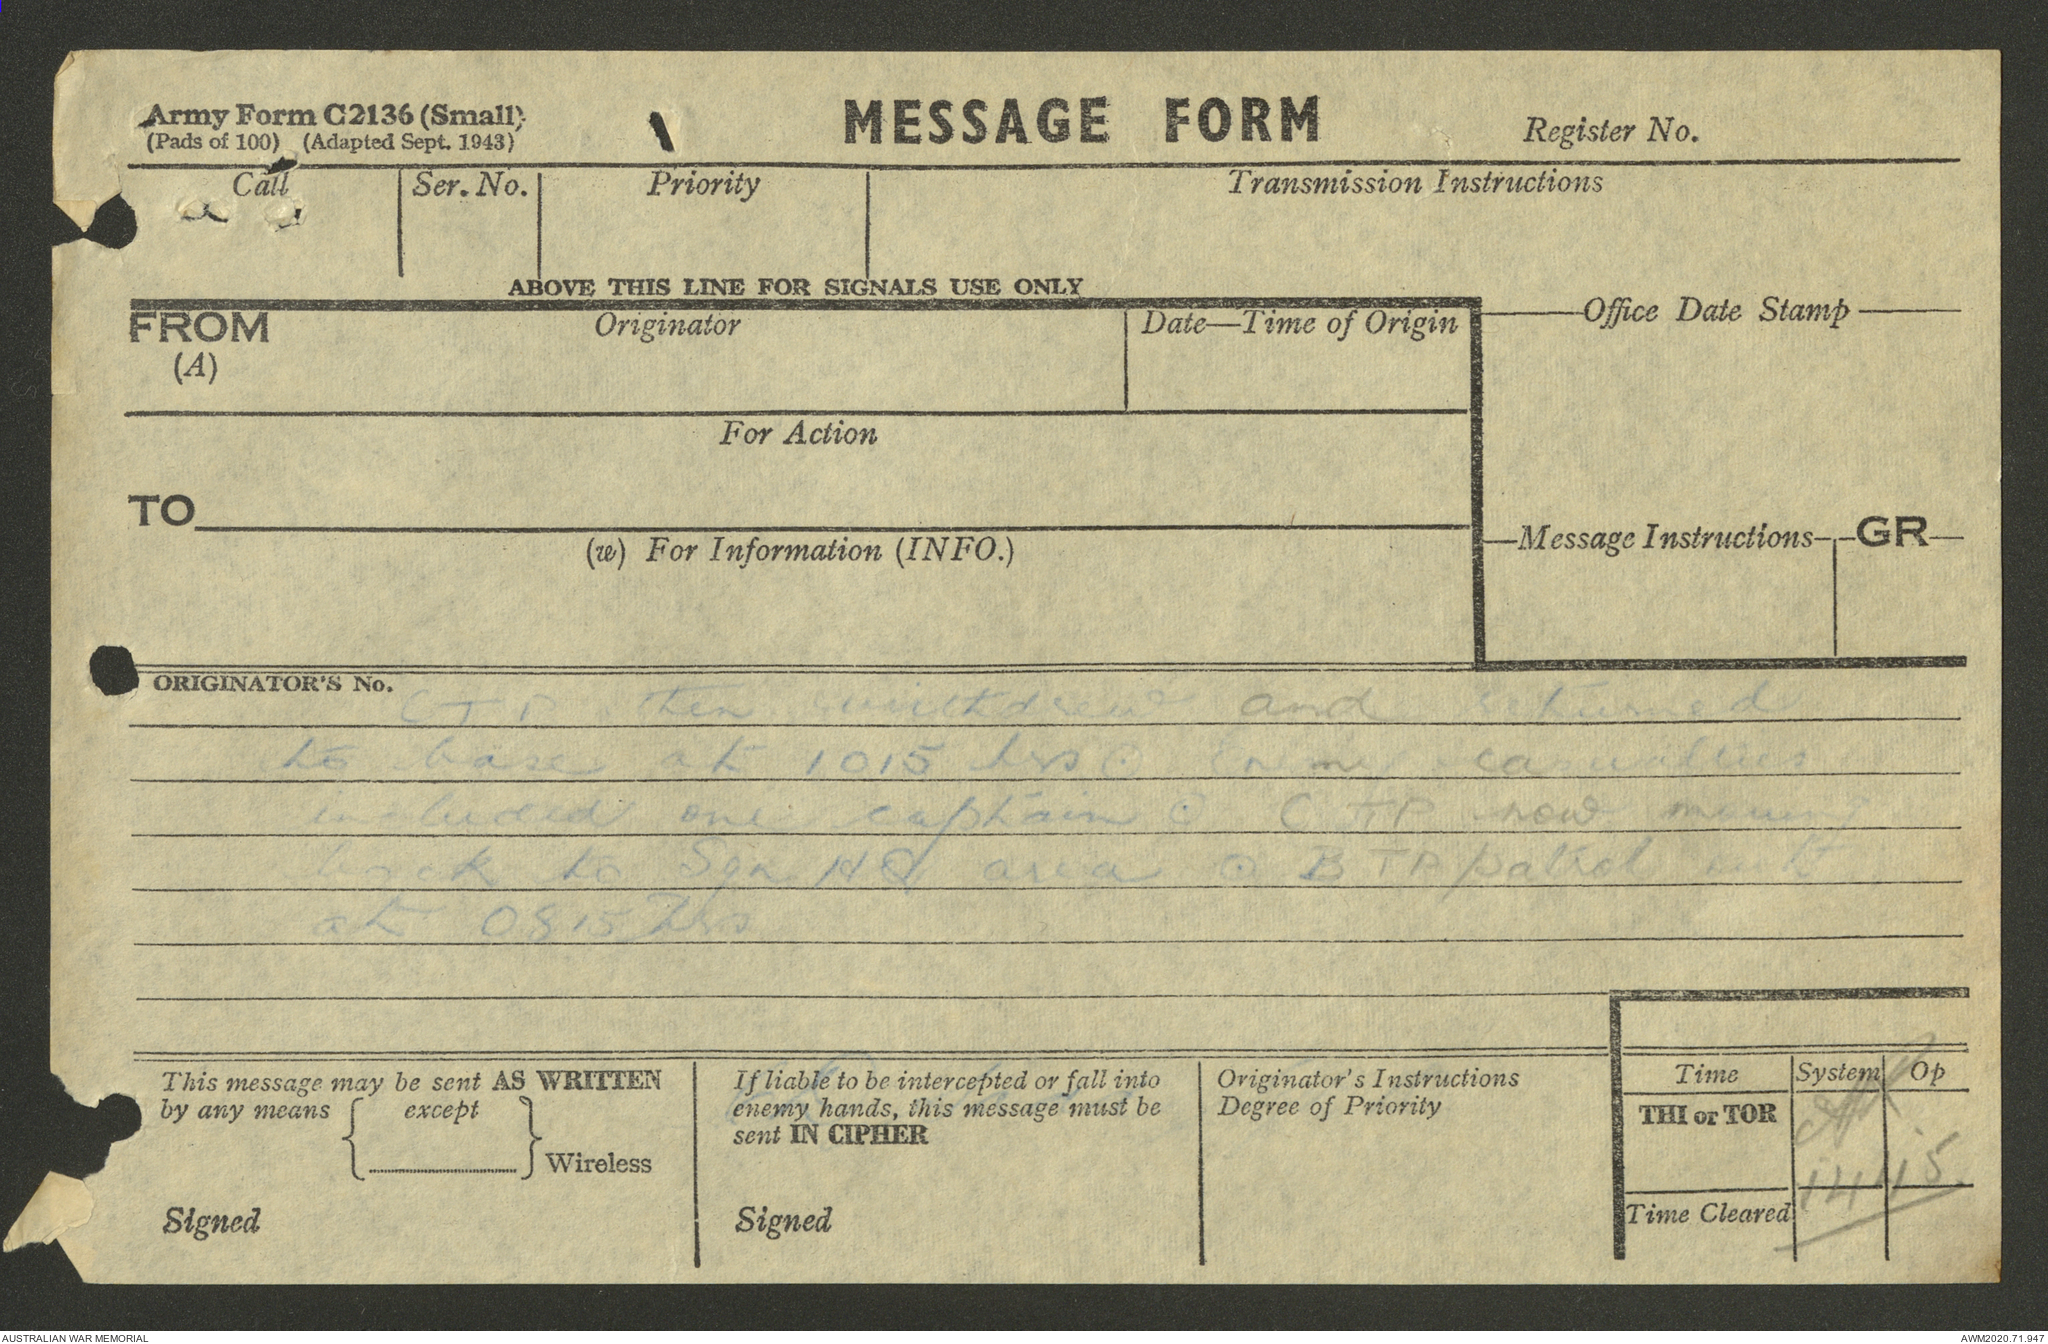 Army Form C2136 (Small)
(Pads of 100) (Adapted Sept. 1943)
MESSAGE FORM
Register No.
Call
Ser. No.
Priority
Transmission Instructions
ABOVE THIS LINE FOR SIGNALS USE ONLY
FROM
(A)
Originator
Date—Time of Origin
Office Date Stamp
For Action
TO
(w) For Information (INFO.)
Message Instructions
GR
ORIGINATOR'S No.
C TP then withdrew and returned
to base at 1015 hrs ⊙ Enemy casualties
included one captain ⊙ C TP now moving
back to Sqn HQ area ⊙ B TP patrol out
at 0815 hrs
This message may be sent AS WRITTEN
by any means { except } Wireless
Signed
If liable to be intercepted or fall into
enemy hands, this message must be
sent IN CIPHER
Signed
Originator's Instructions
Degree of Priority
Time
System
Op
THI or TOR
1415
Time Cleared
AUSTRALIAN WAR MEMORIAL
AWM2020.71.947